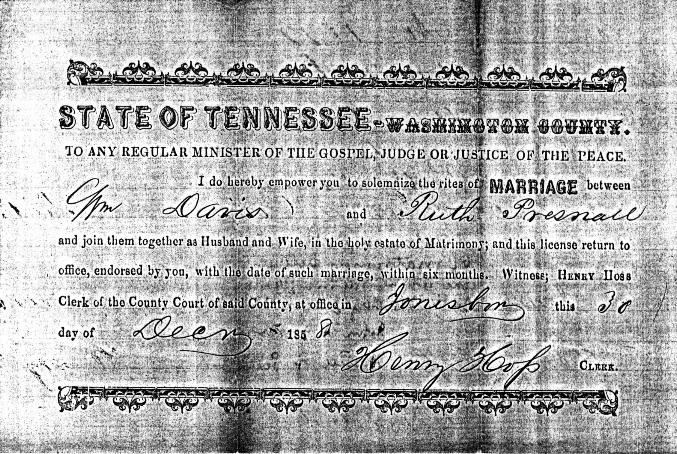 STATE OF TENNESSEE-WASHINGTON COUNTY.
TO ANY REGULAR MINISTER OF THE GOSPEL, JUDGE OR JUSTICE OF THE PEACE.
I do hereby empower you to solemnize the rites of MARRIAGE between
Wm Davis and Ruth Presnall
and join them together as Husband and Wife, in the holy estate of Matrimony; and this license return to
office, endorsed by you, with the date of such marriage, within six months. Witness; HENRY HOSS
Clerk of the County Court of said County, at office in Jonesboro this 30
day of Decr 1858
Henry Hoss CLERK.